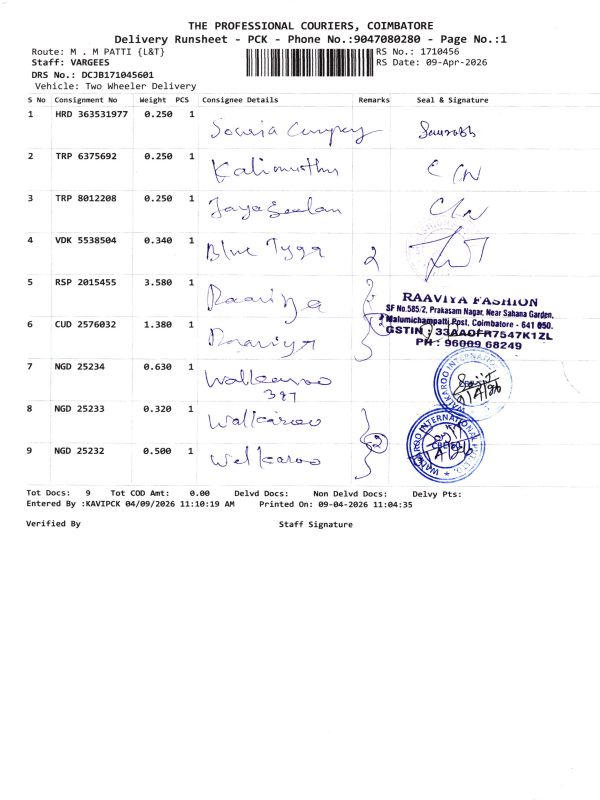 THE PROFESSIONAL COURIERS, COIMBATORE
Delivery Runsheet - PCK - Phone No.:9047080280 - Page No.:1
Route: M . M PATTI {L&T} RS No.: 1710456
Staff: VARGEES RS Date: 09-Apr-2026
DRS No.: DCJB171045601
Vehicle: Two Wheeler Delivery
S No Consignment No Weight PCS Consignee Details Remarks Seal & Signature
1 HRD 363531977 0.250 1 Sourabh
2 TRP 6375692 0.250 1 Kalimuthu
3 TRP 8012208 0.250 1 Jayaseelan
4 VDK 5538504 0.340 1 Blue Tyga 2
5 RSP 2015455 3.580 1 Raaviya
RAAVIYA FASHION
SF No.585/2, Prakasam Nagar, Near Sahana Garden,
Malumichampatti Post, Coimbatore - 641 050.
6 CUD 2576032 1.380 1 Raaviya 2
GSTIN : 33AAOFR7547K1ZL
PH : 96009 68249
7 NGD 25234 0.630 1 Walkaroo
387
WALKAROO INTERNATIONAL
8 NGD 25233 0.320 1 Walkaroo
WALKAROO INTERNATIONAL PVT. LTD.
9 NGD 25232 0.500 1 Walkaroo 2
Tot Docs: 9 Tot COD Amt: 0.00 Delvd Docs: Non Delvd Docs: Delvy Pts:
Entered By :KAVIPCK 04/09/2026 11:10:19 AM Printed On: 09-04-2026 11:04:35
Verified By Staff Signature